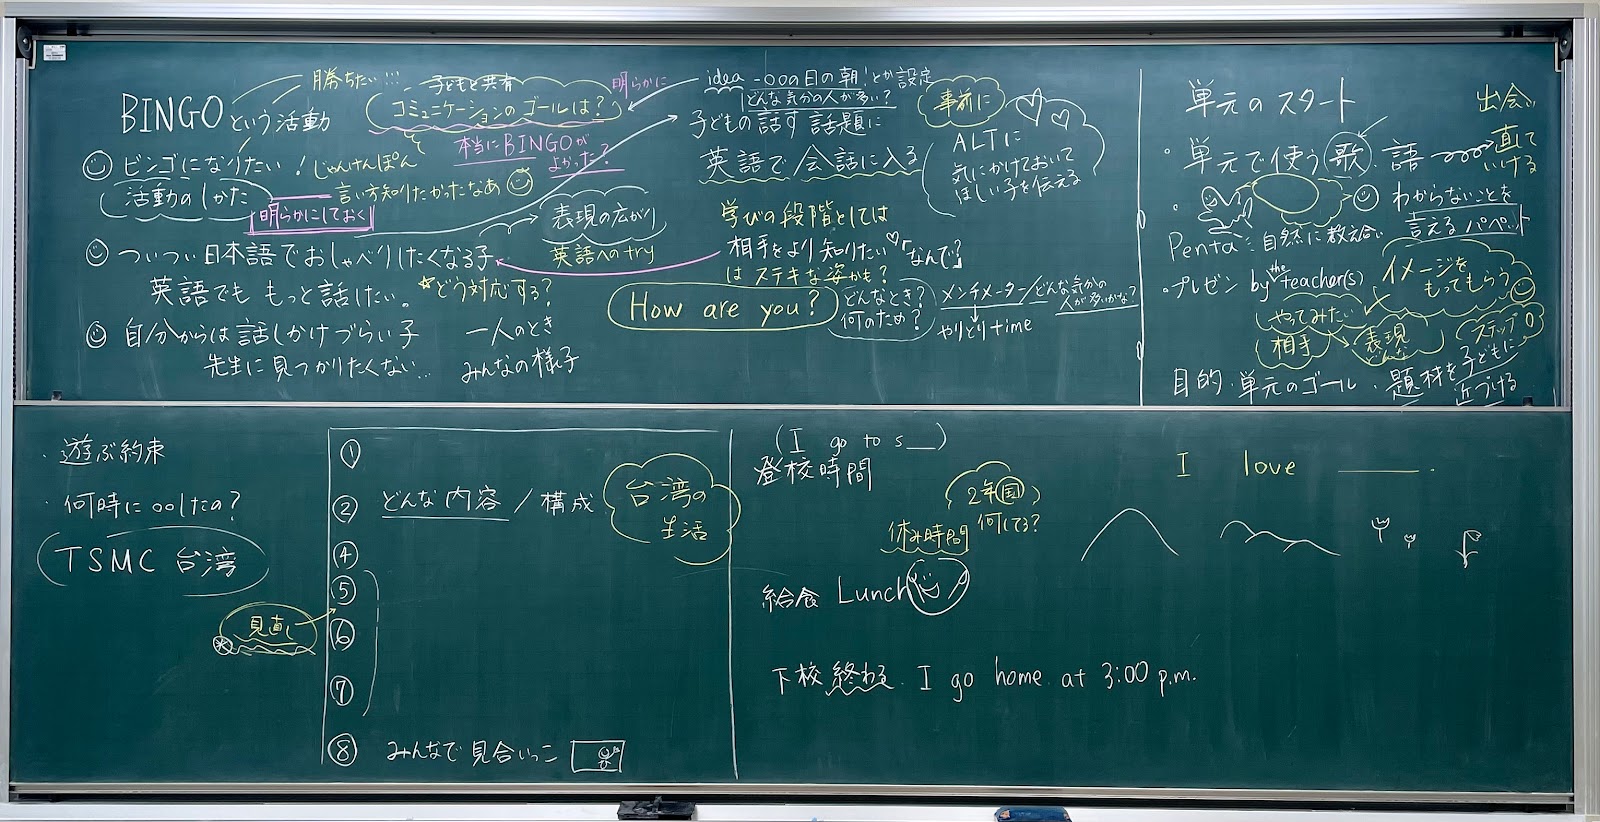 BINGOという活動
勝ちたい!!!
子どもと共有
コミュニケーションのゴールは?
明らかに
本当にBINGOが
よかった?
ビンゴになりたい!じゃんけんぽん
活動のしかた
言い方知りたかったなあ
明らかにしておく
ついつい日本語でおしゃべりしたくなる子
英語でももっと話したい。
☆どう対応する?
自分からは話しかけづらい子
先生に見つかりたくない…
一人のとき
みんなの様子
表現の広がり
英語へのtry
idea -○○の日の朝!とか設定
どんな気分の人が多い?
子どもの話す話題に
英語で会話に入る
事前に
ALTに
気にかけておいて
ほしい子を伝える
学びの段階としては
相手をより知りたい♡「なんで?」
はステキな姿かも?
How are you?
どんなとき?
何のため?
メンチメーター/どんな気分の
人が多いかな?
やりとりtime
単元のスタート
出会い
・単元で使う歌・語
直て
いける
わからないことを
言えるパペット
Penta:自然に教え合い
・プレゼン by the teacher(s)
イメージを
もってもらう
やってみたい
相手
表現
ステップ0
目的・単元のゴール・題材を子どもに
近づける
・遊ぶ約束
・何時に○○したの?
TSMC 台湾
見直し
①
② どんな内容/構成
台湾の
生活
④
⑤
⑥
⑦
⑧ みんなで見合いっこ
(I go to s__)
登校時間
2年国
何してる?
休み時間
給食 Lunch
下校 終わる. I go home at 3:00 p.m.
I love ______.